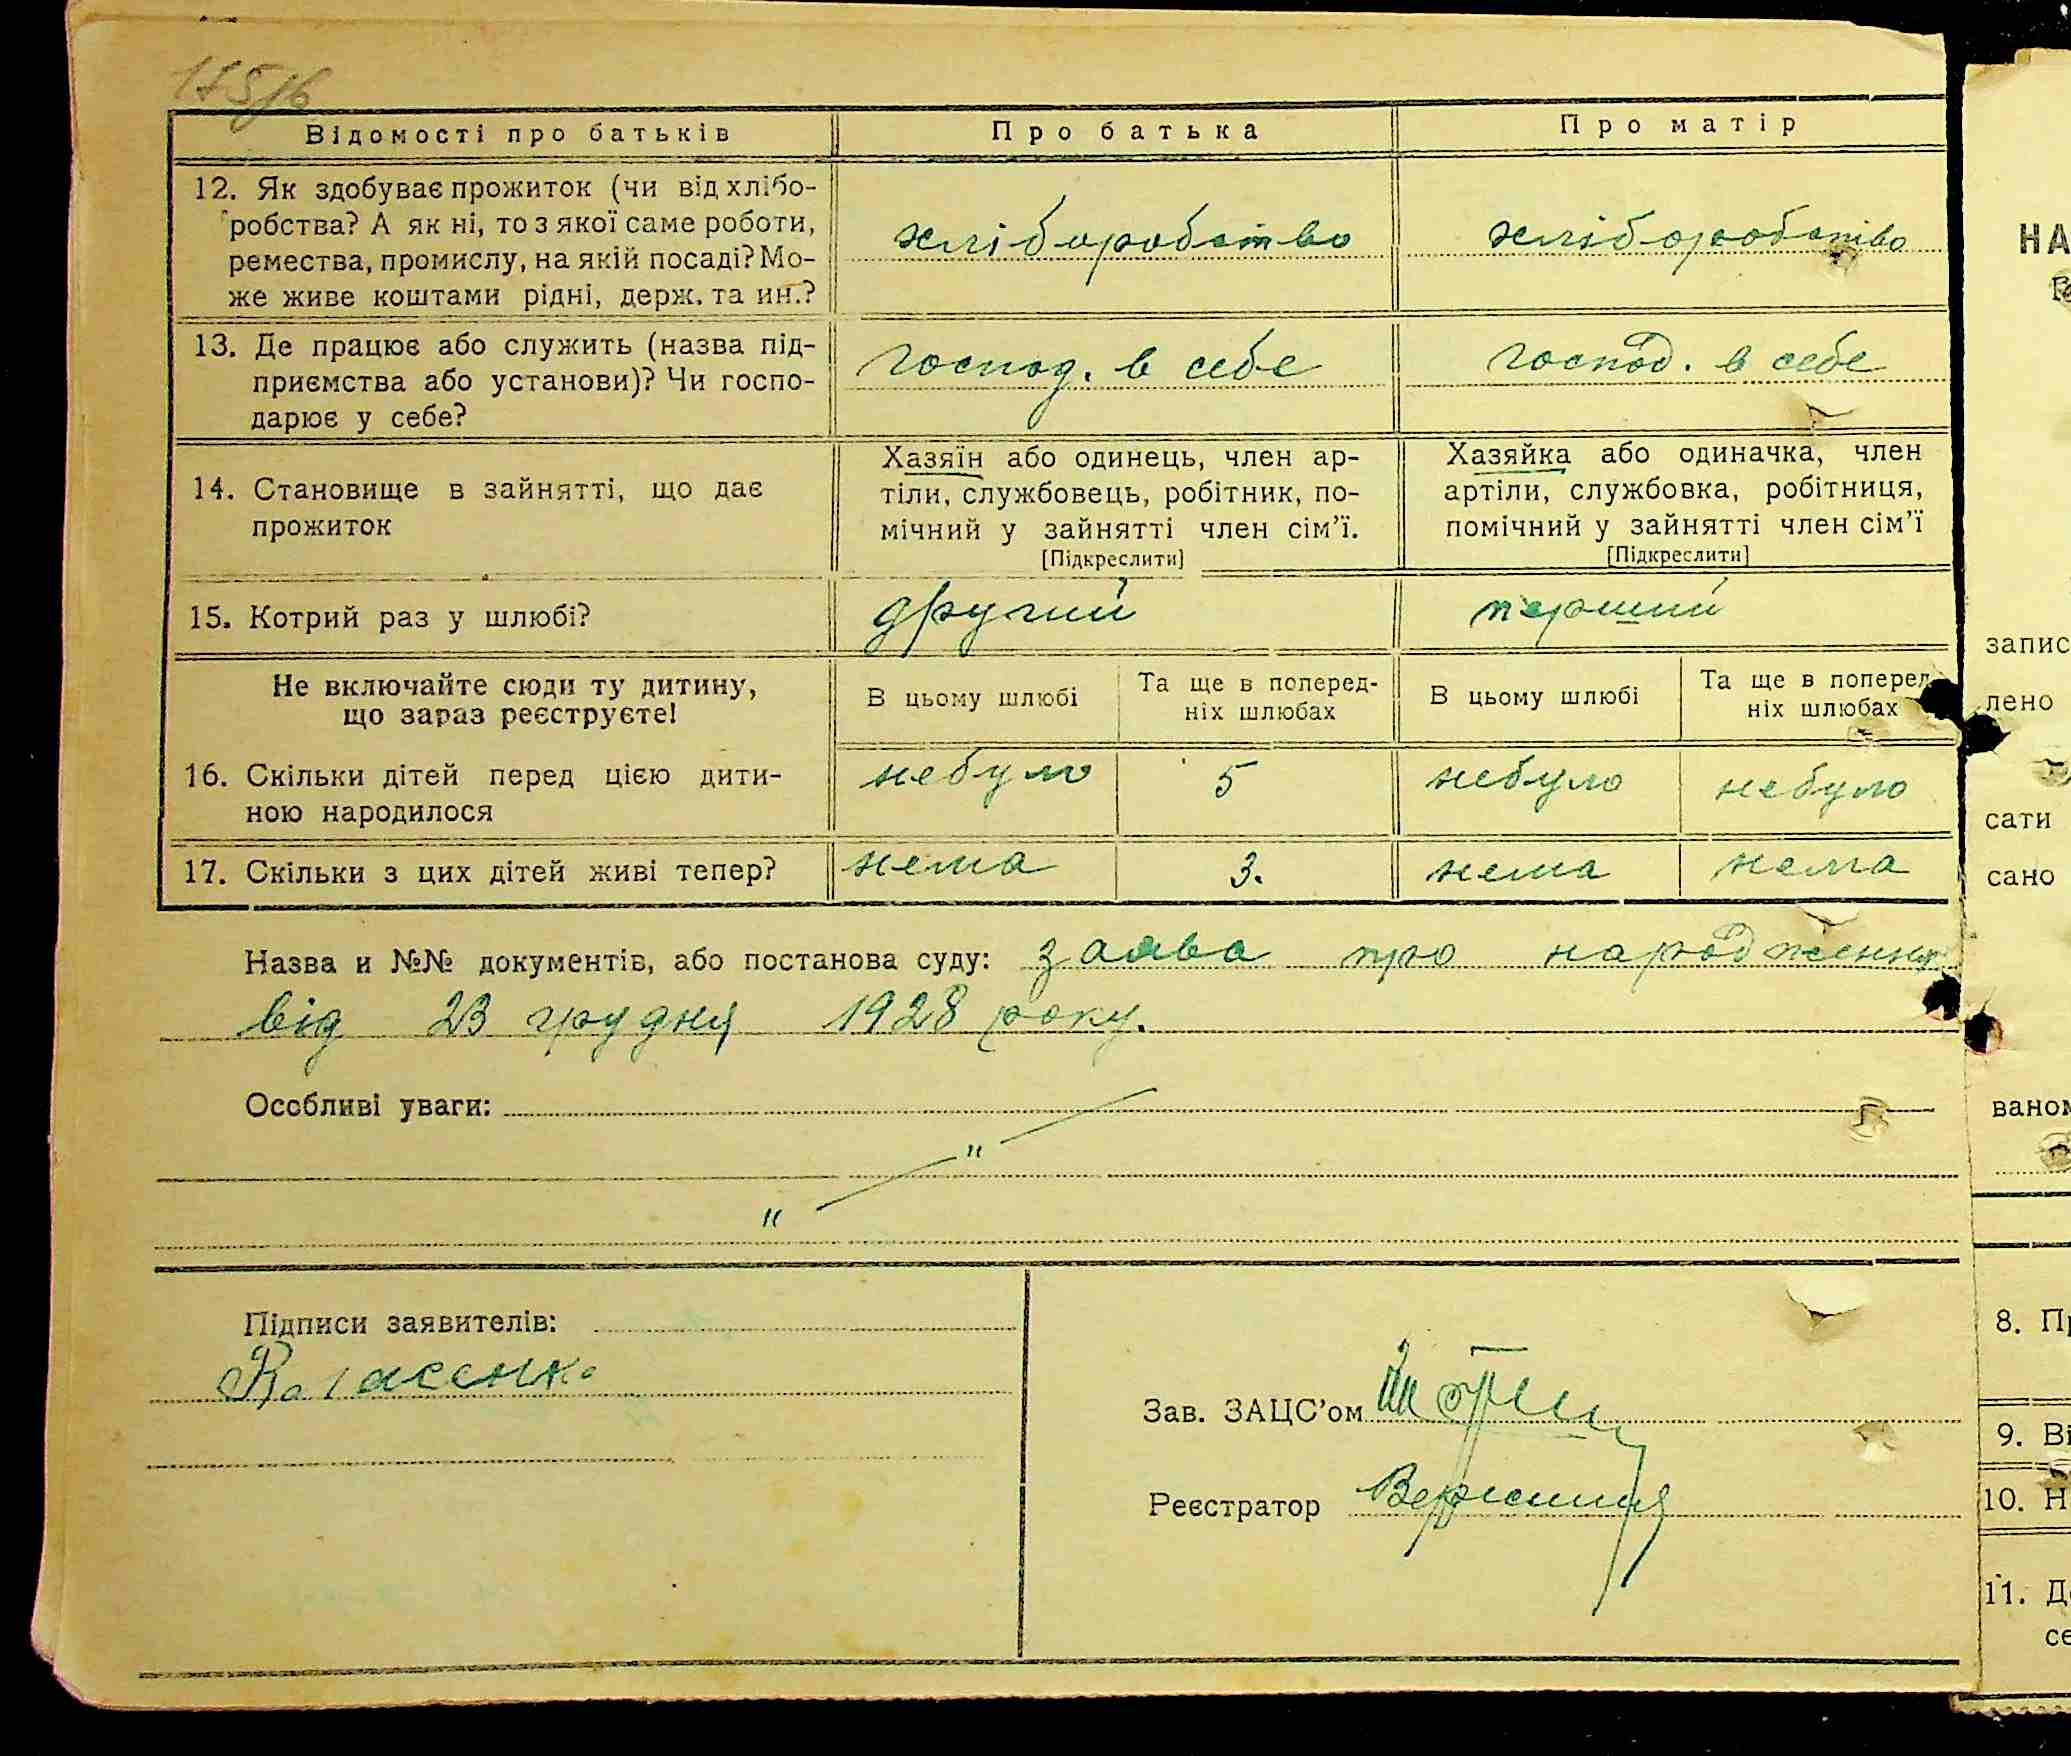 Відомості про батьків
Про батька
Про матір
12. Як здобуває прожиток (чи від хлібо-
робства? А як ні, то з якої саме роботи,
ремества, промислу, на якій посаді? Мо-
же живе коштами рідні, держ. та ин.?
хліборобство
хліборобство
13. Де працює або служить (назва під-
приємства або установи)? Чи госпо-
дарює у себе?
господ. в себе
господ. в себе
14. Становище в зайнятті, що дає
прожиток
Хазяїн або одинець, член ар-
тіли, службовець, робітник, по-
мічний у зайнятті член сім'ї.
[Підкреслити]
Хазяйка або одиначка, член
артіли, службовка, робітниця,
помічний у зайнятті член сім'ї
[Підкреслити]
15. Котрий раз у шлюбі?
другий
перший
Не включайте сюди ту дитину,
що зараз реєструєте!
В цьому шлюбі
Та ще в поперед-
ніх шлюбах
В цьому шлюбі
Та ще в поперед
ніх шлюбах
16. Скільки дітей перед цією дити-
ною народилося
небуло
5
небуло
небуло
17. Скільки з цих дітей живі тепер?
нема
3.
нема
нема
Назва и №№ документів, або постанова суду: заява про народження
від 23 грудня 1928 року.
Особливі уваги:
"
"
Підписи заявителів:
Зав. ЗАЦС'ом
Реєстратор
НА
запис
лено
сати
сано
ваном
8. Пр
9. Ві
10. Н
11. Д
се